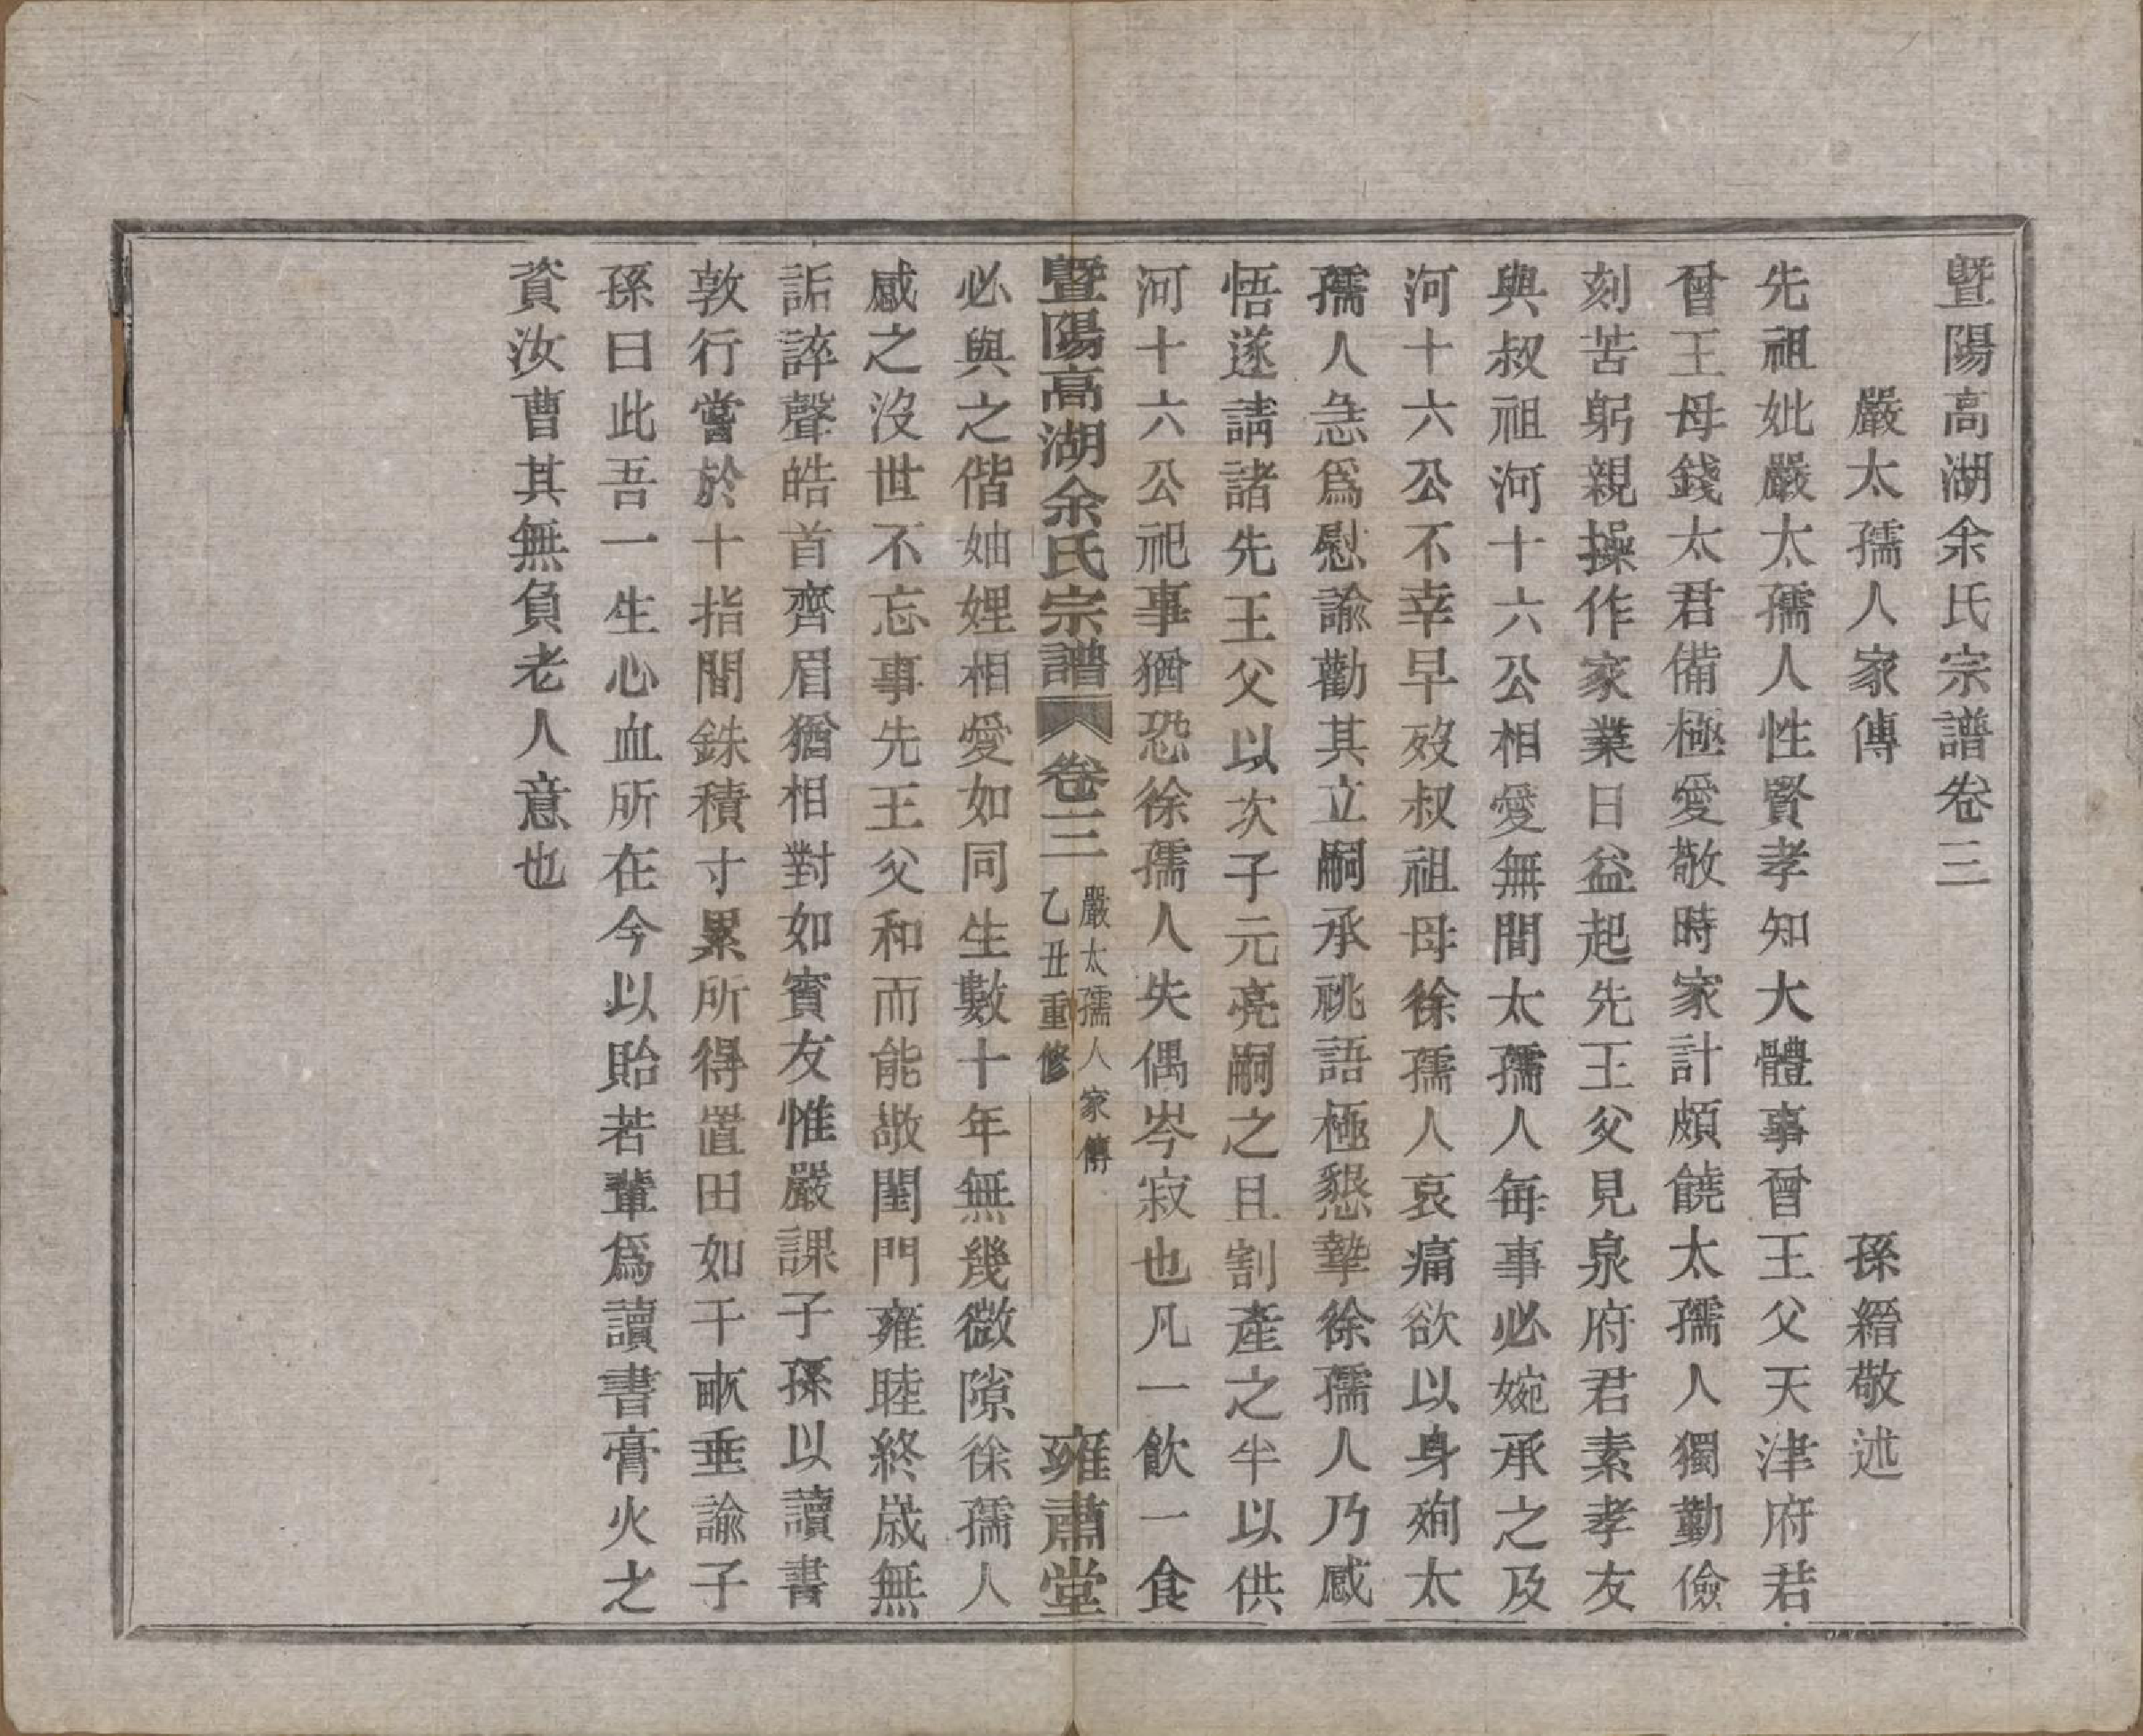 暨陽高湖余氏宗譜卷三
嚴太孺人家傳　孫縉敬述
先祖妣嚴太孺人性賢孝知大體事曾王父天津府君
曾王母錢太君備極愛敬時家計頗饒太孺人獨勤儉
刻苦躬親操作家業日益起先王父見泉府君素孝友
與叔祖河十六公相愛無間太孺人每事必婉承之及
河十六公不幸早歿叔祖母徐孺人哀痛欲以身殉太
孺人急爲慰諭勸其立嗣承祧語極懇摯徐孺人乃感
悟遂請諸先王父以次子元亮嗣之且割產之半以供
河十六公祀事猶恐徐孺人失偶岑寂也凡一飲一食
暨陽高湖余氏宗譜　卷三　嚴太孺人家傳　乙丑重修　雍肅堂
必與之偕妯娌相愛如同生數十年無幾微隙徐孺人
感之沒世不忘事先王父和而能敬閨門雍睦終歲無
詬誶聲皓首齊眉猶相對如賓友惟嚴課子孫以讀書
敦行嘗於十指間銖積寸累所得置田如干畝垂諭子
孫曰此吾一生心血所在今以貽若輩爲讀書膏火之
資汝曹其無負老人意也